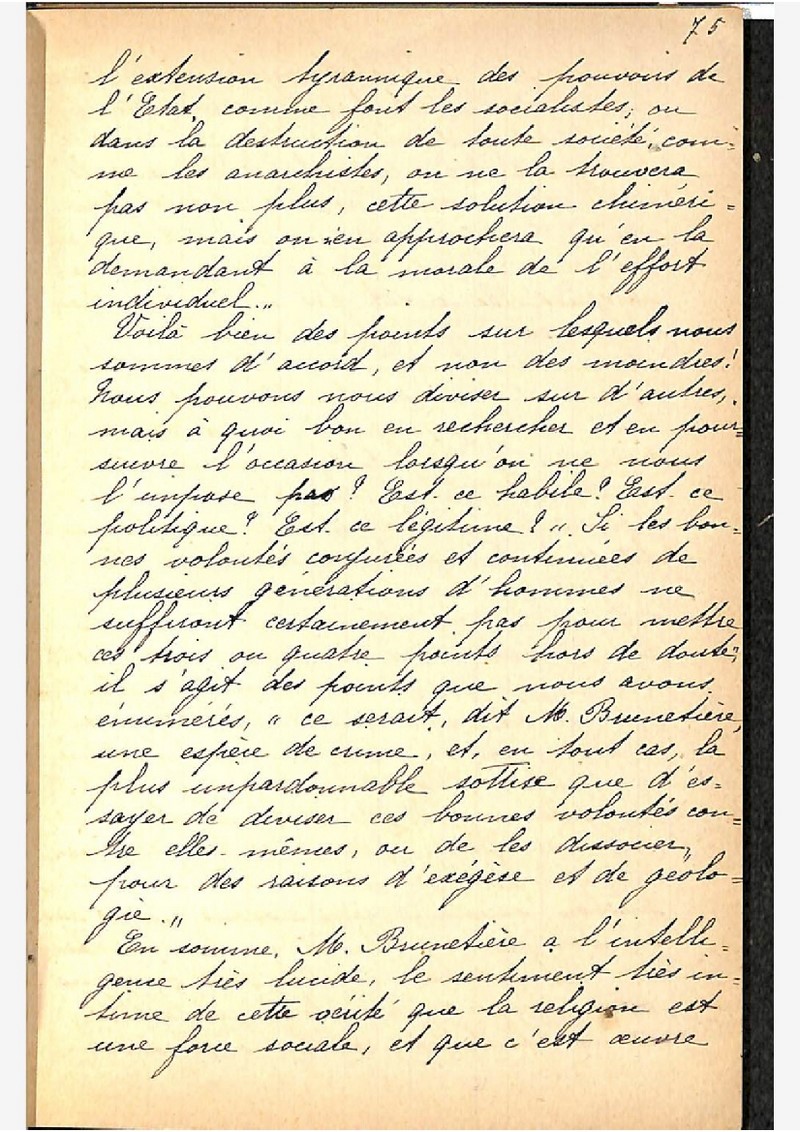 75
l'extension tyrannique des pouvoirs de
l'Etat, comme font les socialistes; ou
dans la destruction de toute société, com=
me les anarchistes, on ne la trouvera
pas non plus, cette solution chiméri=
que, mais on n'en approchera qu'en la
demandant à la morale de l'effort
individuel.„
Voilà bien des points sur lesquels nous
sommes d'accord, et non des moindres!
Nous pouvons nous diviser sur d'autres,
mais à quoi bon en rechercher et en pour=
suivre l'occasion lorsqu'on ne nous
l'impose pas? Est-ce habile? Est-ce
politique? Est-ce légitime? „ Si les bon=
nes volontés conjurées et continuées de
plusieurs générations d'hommes ne
suffiront certainement pas pour mettre
ces trois ou quatre points hors de doute„,
il s'agit des points que nous avons
énumérés, „ ce serait, dit M. Brunetière,
une espèce de crime, et, en tout cas, la
plus impardonnable sottise que d'es=
sayer de diviser ces bonnes volontés con=
tre elles-mêmes, ou de les dissocier,
pour des raisons d'exégèse et de géolo=
gie.„
En somme, M. Brunetière a l'intelli=
gence très lucide, le sentiment très in=
time de cette vérité que la religion est
une force sociale, et que c'est œuvre